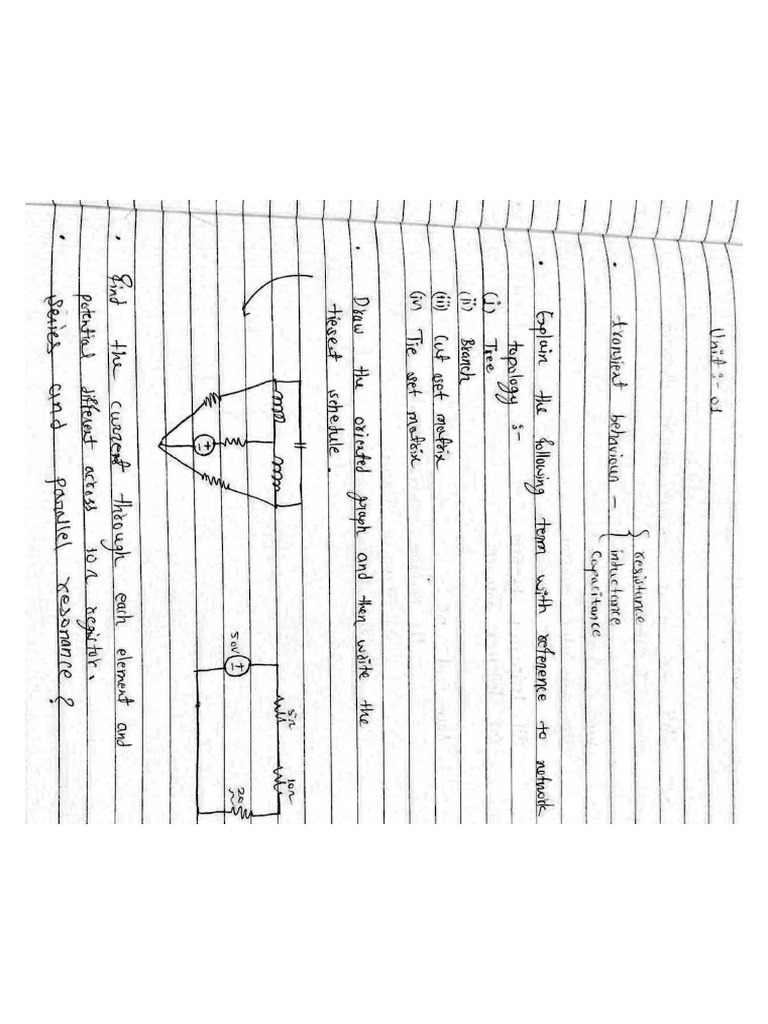 Unit :- 01
• transient behaviour - { resistance
inductance
Capacitance
• Explain the following term with reference to network
topology :-
(i) Tree
(ii) Branch
(iii) Cut set matrix
(iv) Tie set matrix
• Draw the oriented graph and then write the
tieset schedule.
5Ω 10Ω
50V
20
Ω
• Find the current through each element and
potential different across 10Ω registor.
• series and parallel resonance ?